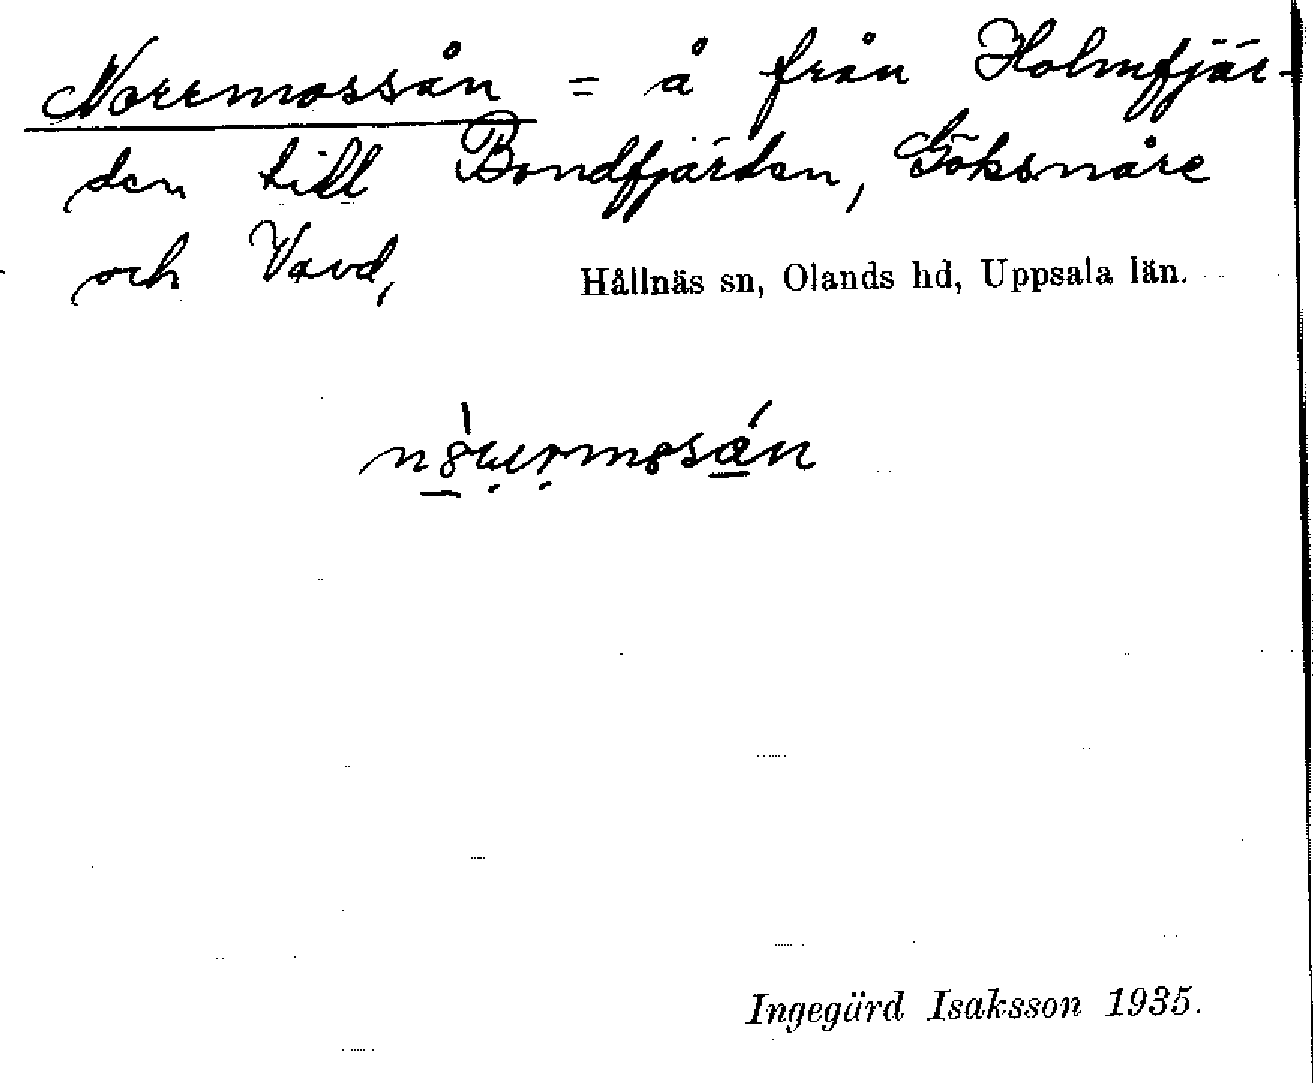 Norrmossån = å från Holmfjär-
den till Bondfjärden, Göksnåre
och Vavd,
Hållnäs sn, Olands hd, Uppsala län.
Ingegärd Isaksson 1935.